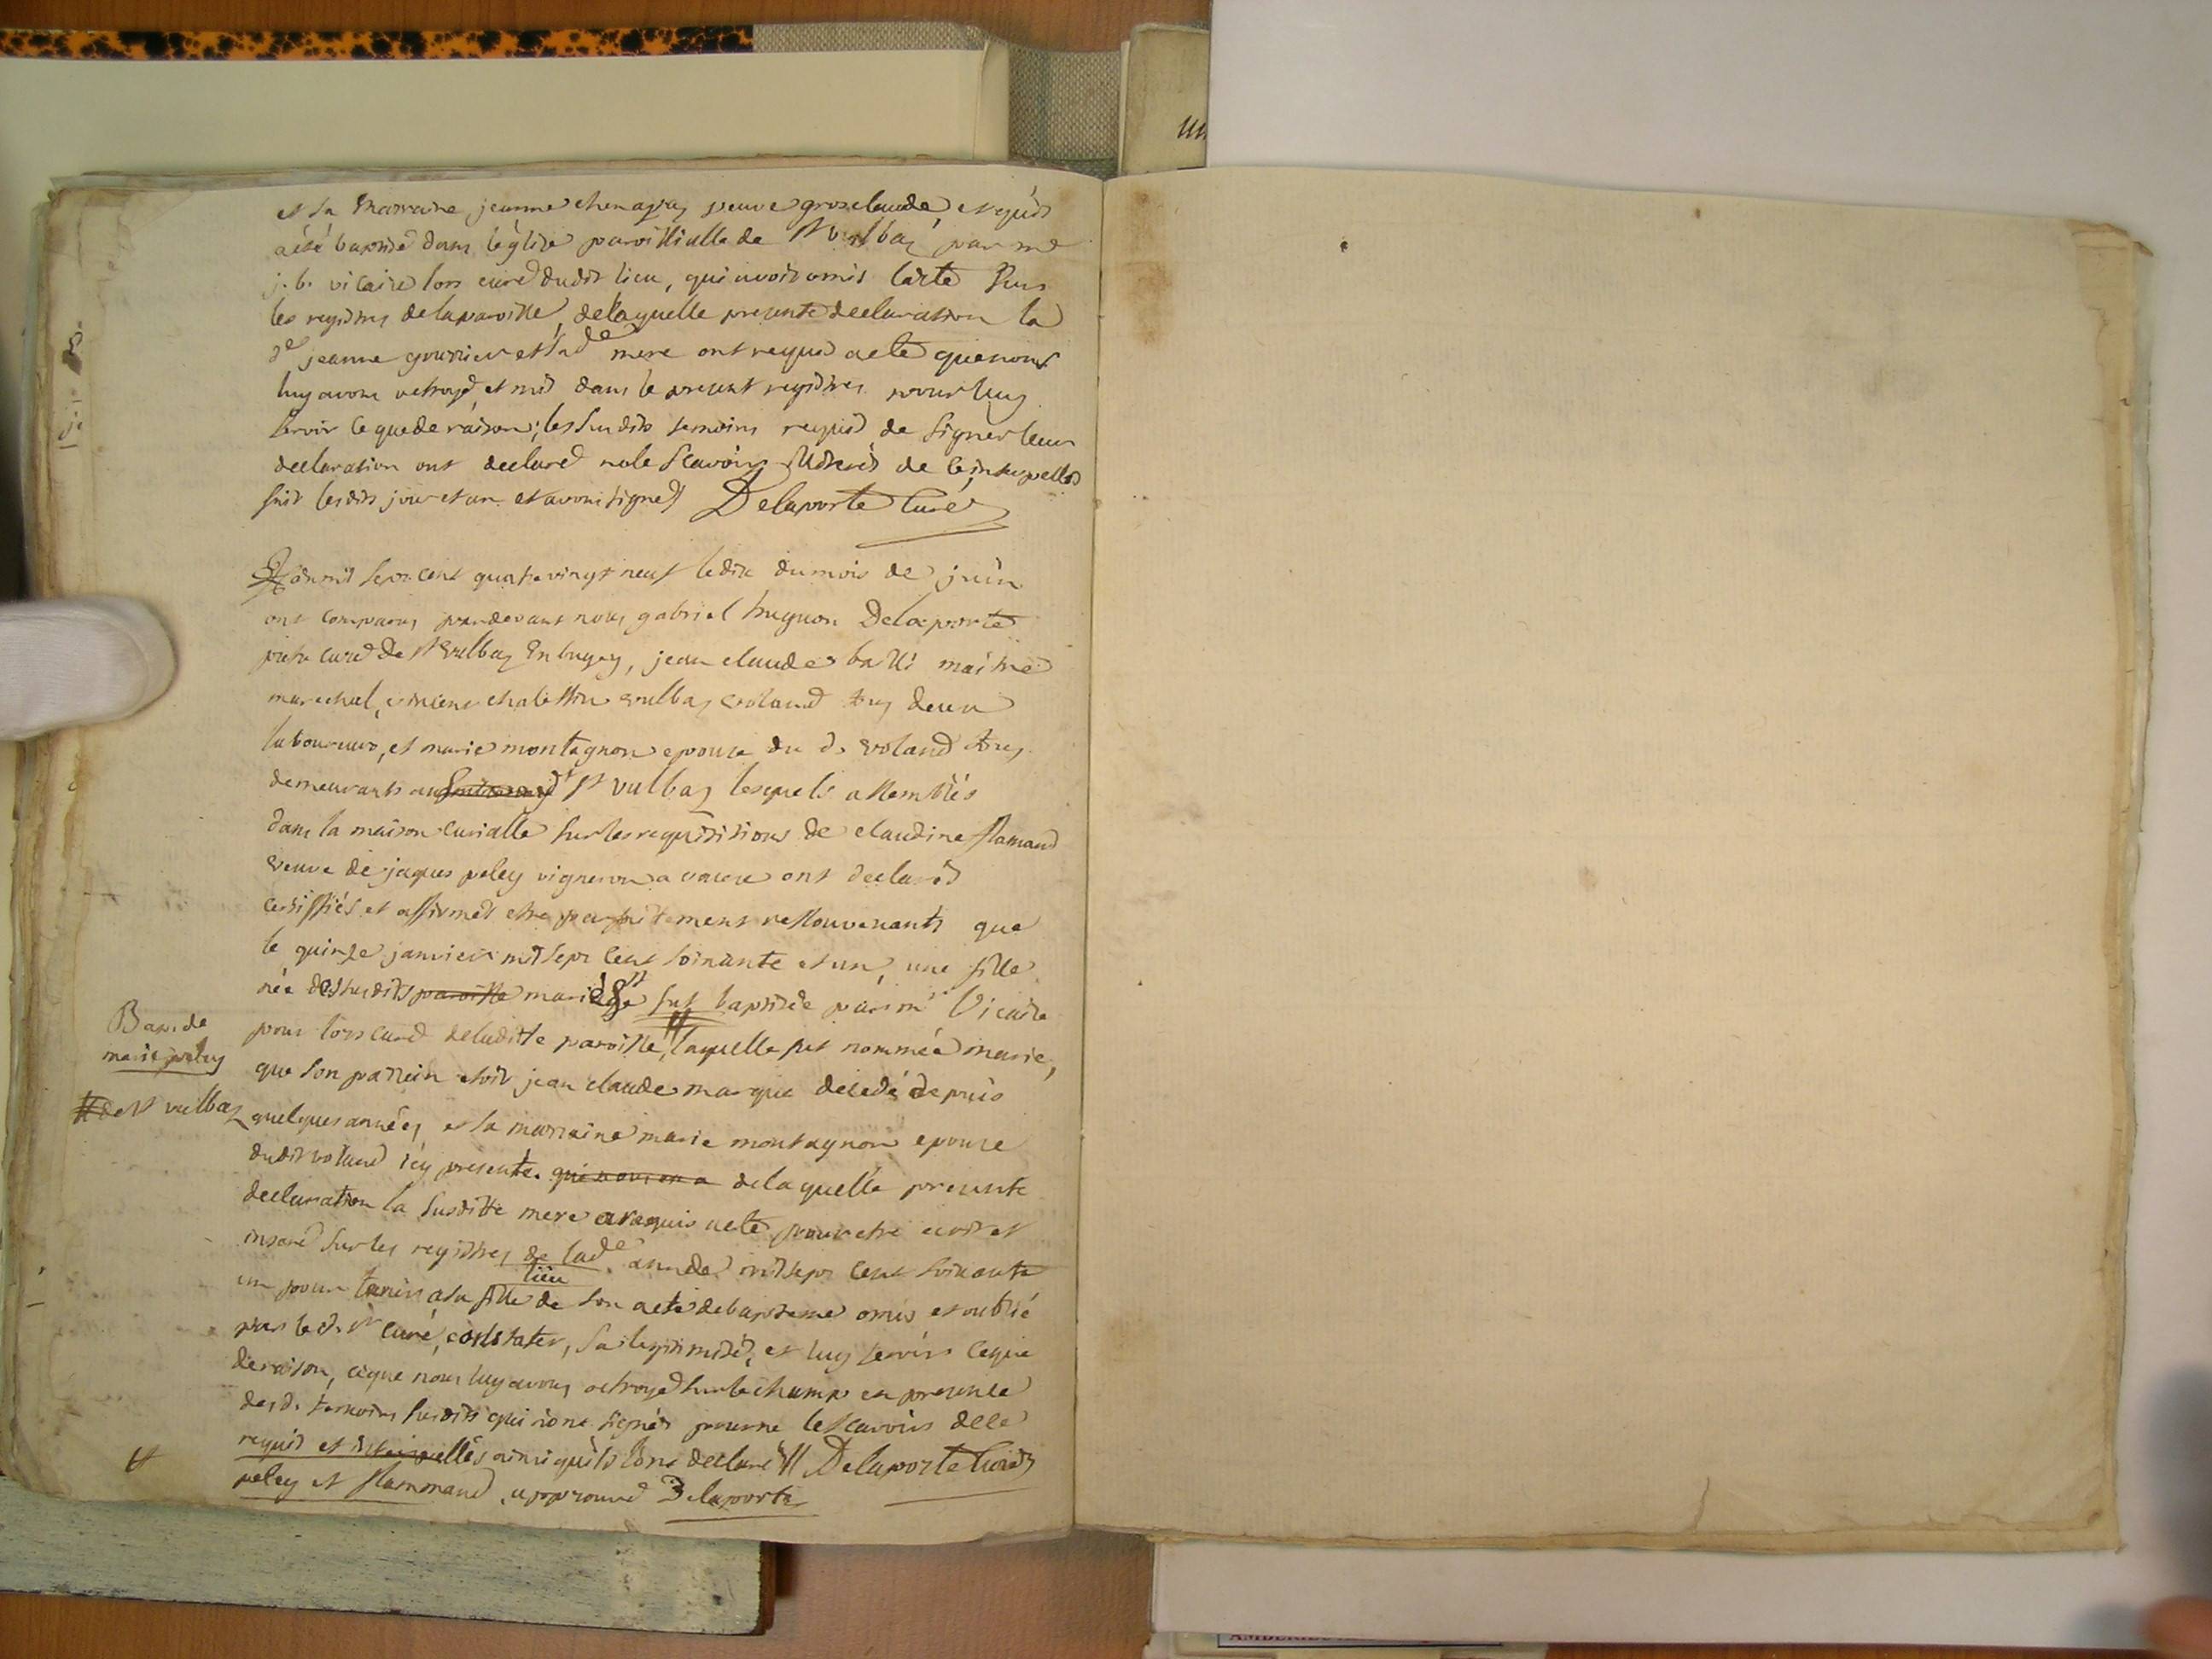 et sa marraine jeanne veuve groselaude, et quil
a été baptisé dans léglise paroissialle de St vulbaz par me
j. b. vicaire lors curé dudit lieu, qui avoit omis lacte sur
les registres de la paroisse, de laquelle presente declaration la
de jeanne et sa de mere ont requis acte que nous
luy avons octroyé, et mis dans le present registres pour luy
servir ce que de raison; les susdits temoins requis de signer leur
declaration ont declaré ne le scavoir de ce interpellés
lesdits jour et an et avons signé Delaporte curé
L'an mil sept cent quatre vingt neuf le dix du mois de juin
ont comparus pardevant nous gabriel huguon Delaporte
pretre curé de St vulbaz en bugey, jean claude balli maitre
marechal, vulbaz voland tous deux
laboureurs, et marie montagnon epouse du d. voland tous
demeurants au St vulbaz lesquels assemblés
dans la maison curialle sur les requisitions de claudine flamand
veuve de jaques peley vigneron a ont declaré
certiffiés et affirmés etre parfaitement ressouvenants que
le quinze janvier mil sept cent soixante et un, une fille
née des susdits paroisse mariés fut baptisée par mr Vicaire
pour lors curé de laditte paroisse, laquelle fut nommée marie,
Bap. de
marie peley
que son parrein etoit jean claude marque decedé depuis
# de St vulbaz
quelques années et la marraine marie montagnon epouse
dudit voland icy presente. qui nous en a de laquelle presente
declaration la susditte mere a requis acte pour etre ecrit et
inseré sur les registres de lade année mil sept cent soixante
lieu
un pour tenir a sa fille de son acte de bapteme omis et oublié
par le d. sr curé, constater, sa legitimité, et luy servir ce que
de raison, ce que nous luy avons octroyé sur le champ en presence
des d. temoins susdits qui n'ont signés pour ne le scavoir de ce
requis et interpellés ainsi quils l'ont declaré // Delaporte curé
# peley et flammand, approuvé Delaporte